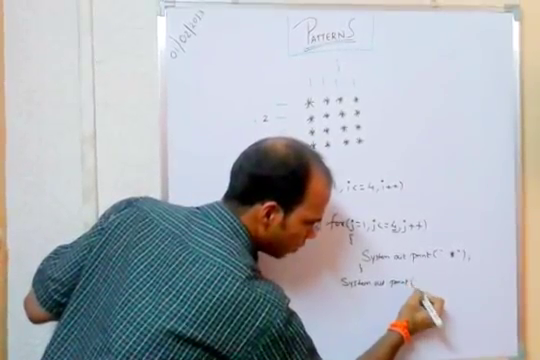 01/02/2023
PATTERNS
j
1 1 1 1
* * * *
2 * * * *
* * * *
* * * *
, i<=4, i++)
for(j=1, j<=4, j++)
{
System out print(" *");
}
System out print(